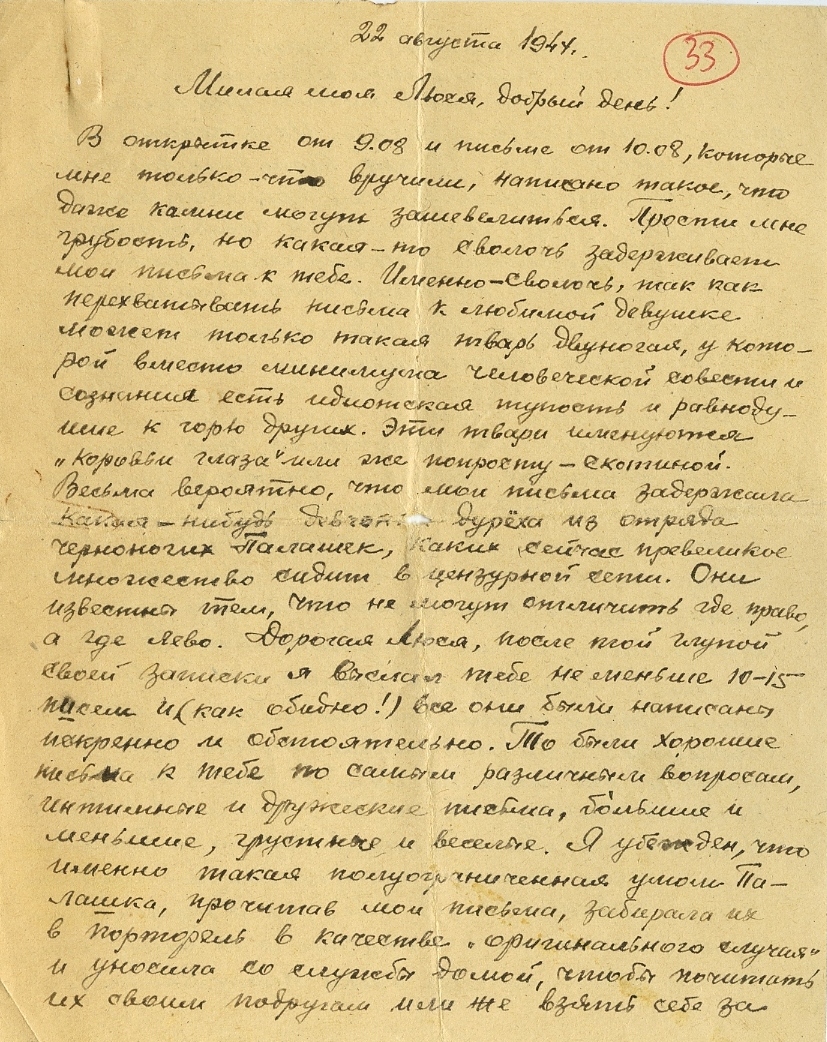 22 августа 1944.
33
Милая моя Люся, добрый день!
В открытке от 9.08 и письме от 10.08, которые
мне только-что вручили, написано такое, что
даже камни могут зашевелиться. Прости мне
грубость, но какая-то сволочь задерживает
мои письма к тебе. Именно-сволочь, так как
перехватывать письма к любимой девушке
может только такая тварь двуногая, у кото-
рой вместо минимума человеческой совести и
сознания есть идиотская тупость и равноду-
шие к горю других. Эти твари именуются
„коровьи глаза" или же попросту - скотиной.
Весьма вероятно, что мои письма задержала
какая-нибудь девчонка дурёха из отряда
черноногих Палашек, каких сейчас превеликое
множество сидит в цензурной сети. Они
известны тем, что не могут отличить где право,
а где лево. Дорогая Люся, после той глупой
своей записки я выслал тебе не меньше 10-15
писем и (как обидно!) все они были написаны
искренно и обстоятельно. То были хорошие
письма к тебе по самым различным вопросам,
интимные и дружеские письма, бо́льшие и
меньшие, грустные и веселые. Я убежден, что
именно такая полуограниченная умом Па-
лашка, прочитав мои письма, забирала их
в портфель в качестве „оригинального случая"
и уносила со службы домой, чтобы почитать
их своим подругам или же взять себе за